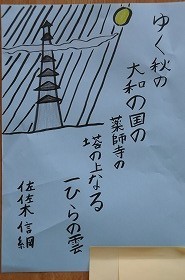 ゆく秋の
大和の国の
薬師寺の
塔の上なる
一ひらの雲
佐佐木信綱